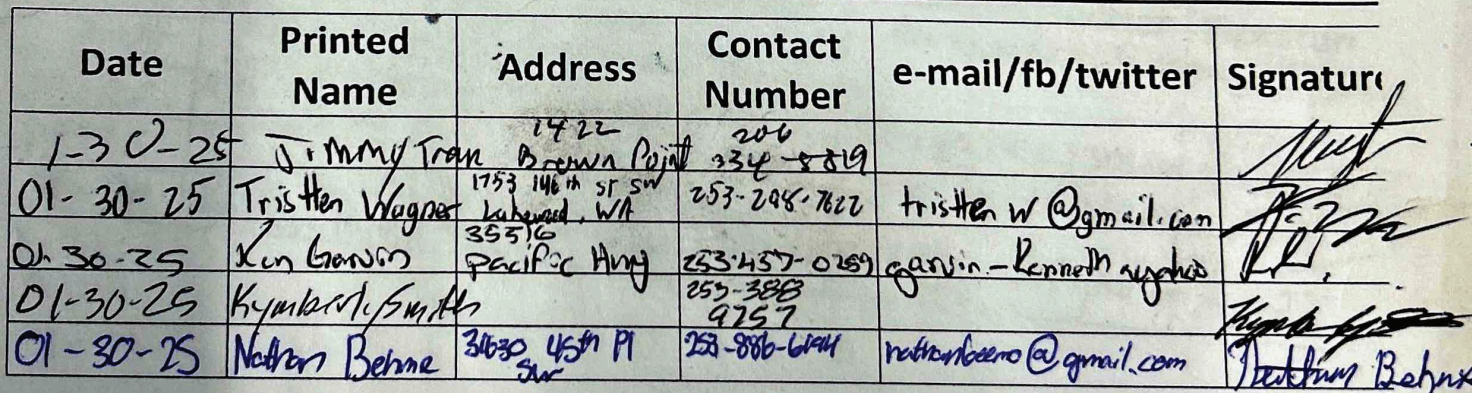 Date Printed Name Address Contact Number e-mail/fb/twitter Signature
1-30-25 Jimmy Tran 1422 Brown Point 206 334-8819
01-30-25 Tristten Wagner 1753 146th st SW Lakewood, WA 253-298-7622 tristten w@gmail.com
01-30-25 Ken Garvin 35516 Pacific Hwy 253-457-0259 garvin-Kenneth
01-30-25 Kymberly Smith 253-388 9257
01-30-25 Nathan Behme 45th Pl SW nathanbeemo@gmail.com Nathan Behme